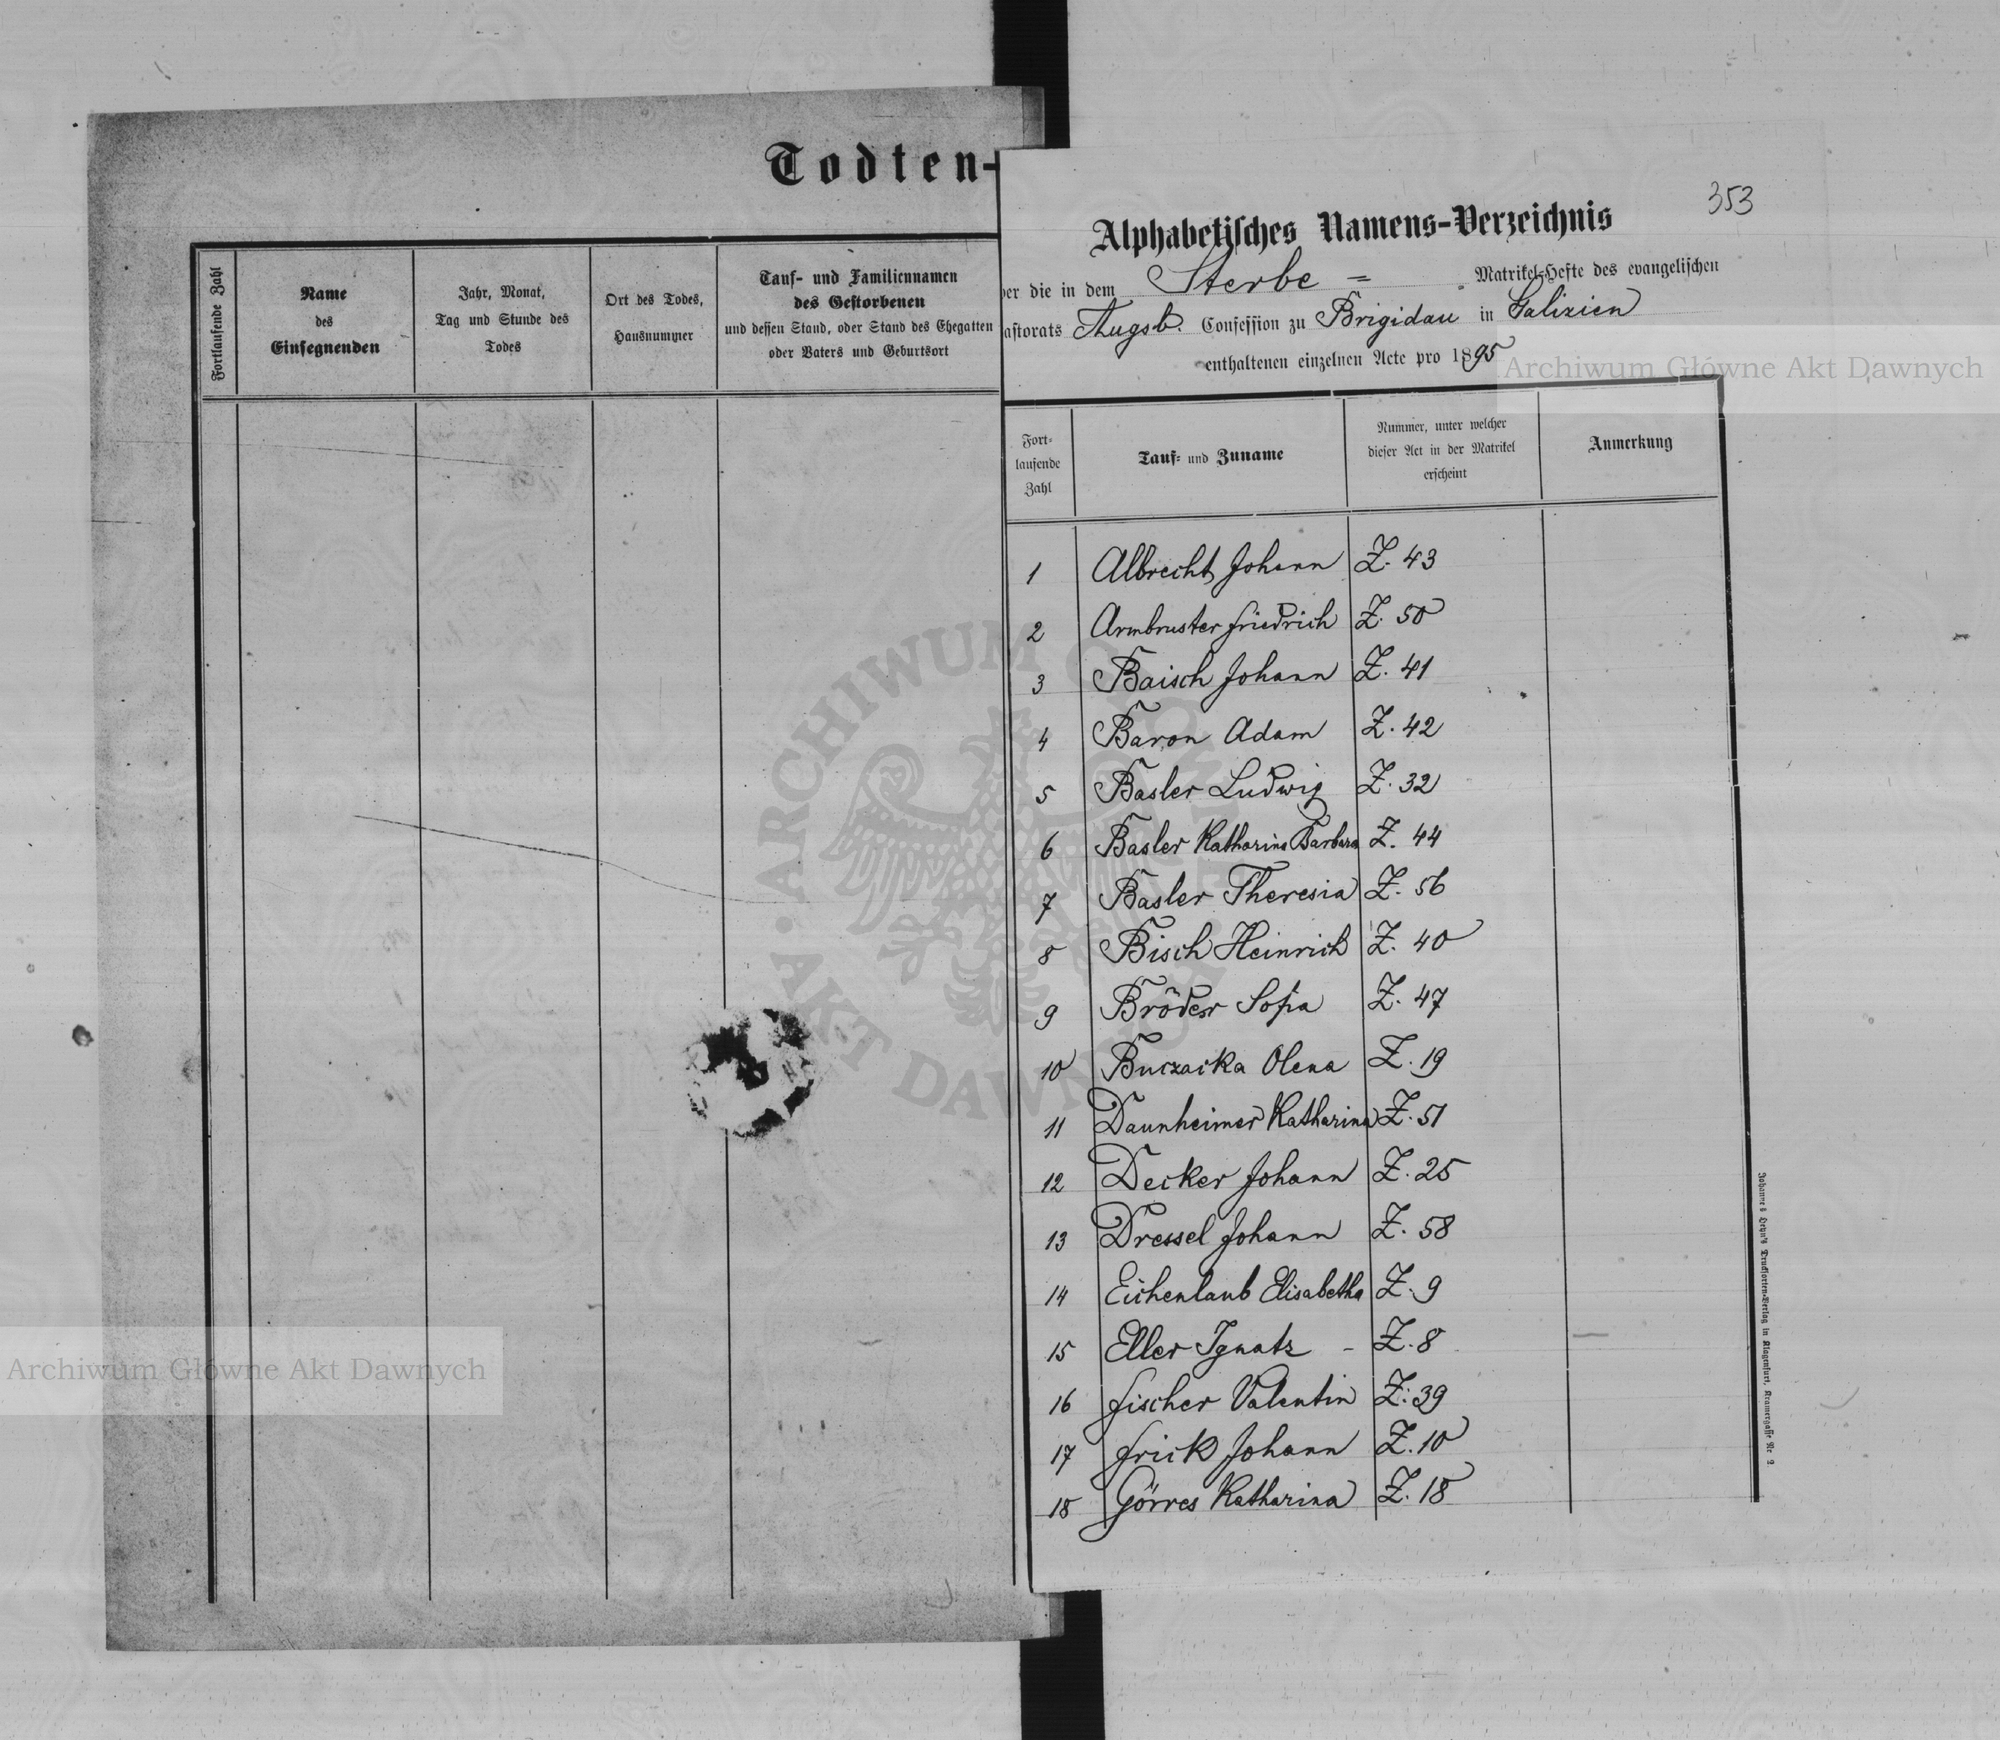 Todten-
Fortlaufende Zahl
Name
des
Einsegnenden
Jahr, Monat,
Tag und Stunde des
Todes
Ort des Todes,
Hausnummer
Tauf- und Familiennamen
des Gestorbenen
und dessen Stand, oder Stand des Ehegatten
oder Vaters und Geburtsort
353
Alphabetisches Namens-Verzeichnis
er die in dem Sterbe = Matrikel-Hefte des evangelischen
astorats Augsb. Confession zu Brigidau in Galizien
enthaltenen einzelnen Acte pro 1895
Fort-
laufende
Zahl
Tauf- und Zuname
Nummer, unter welcher
dieser Act in der Matrikel
erscheint
Anmerkung
1 Albrecht Johann Z. 43
2 Armbruster Friedrich Z. 50
3 Baisch Johann Z. 41
4 Baron Adam Z. 42
5 Basler Ludwig Z. 32
6 Basler Katharina Barbara Z. 44
7 Basler Theresia Z. 56
8 Bisch Heinrich Z. 40
9 Bröder Sofia Z. 47
10 Buczacka Olena Z. 19
11 Daunheimer Katharina Z. 51
12 Decker Johann Z. 25
13 Dressel Johann Z. 58
14 Eichenlaub Elisabetha Z. 9
15 Eller Ignatz - Z. 8
16 Fischer Valentin Z. 39
17 Frick Johann Z. 10
18 Görres Katharina Z. 18
Johannes Heyn's Drucksorten-Verlag in Klagenfurt, Kramergasse Nr 2.
Archiwum Główne Akt Dawnych
Archiwum Główne Akt Dawnych
ARCHIWUM GŁÓWNE
AKT DAWNYCH